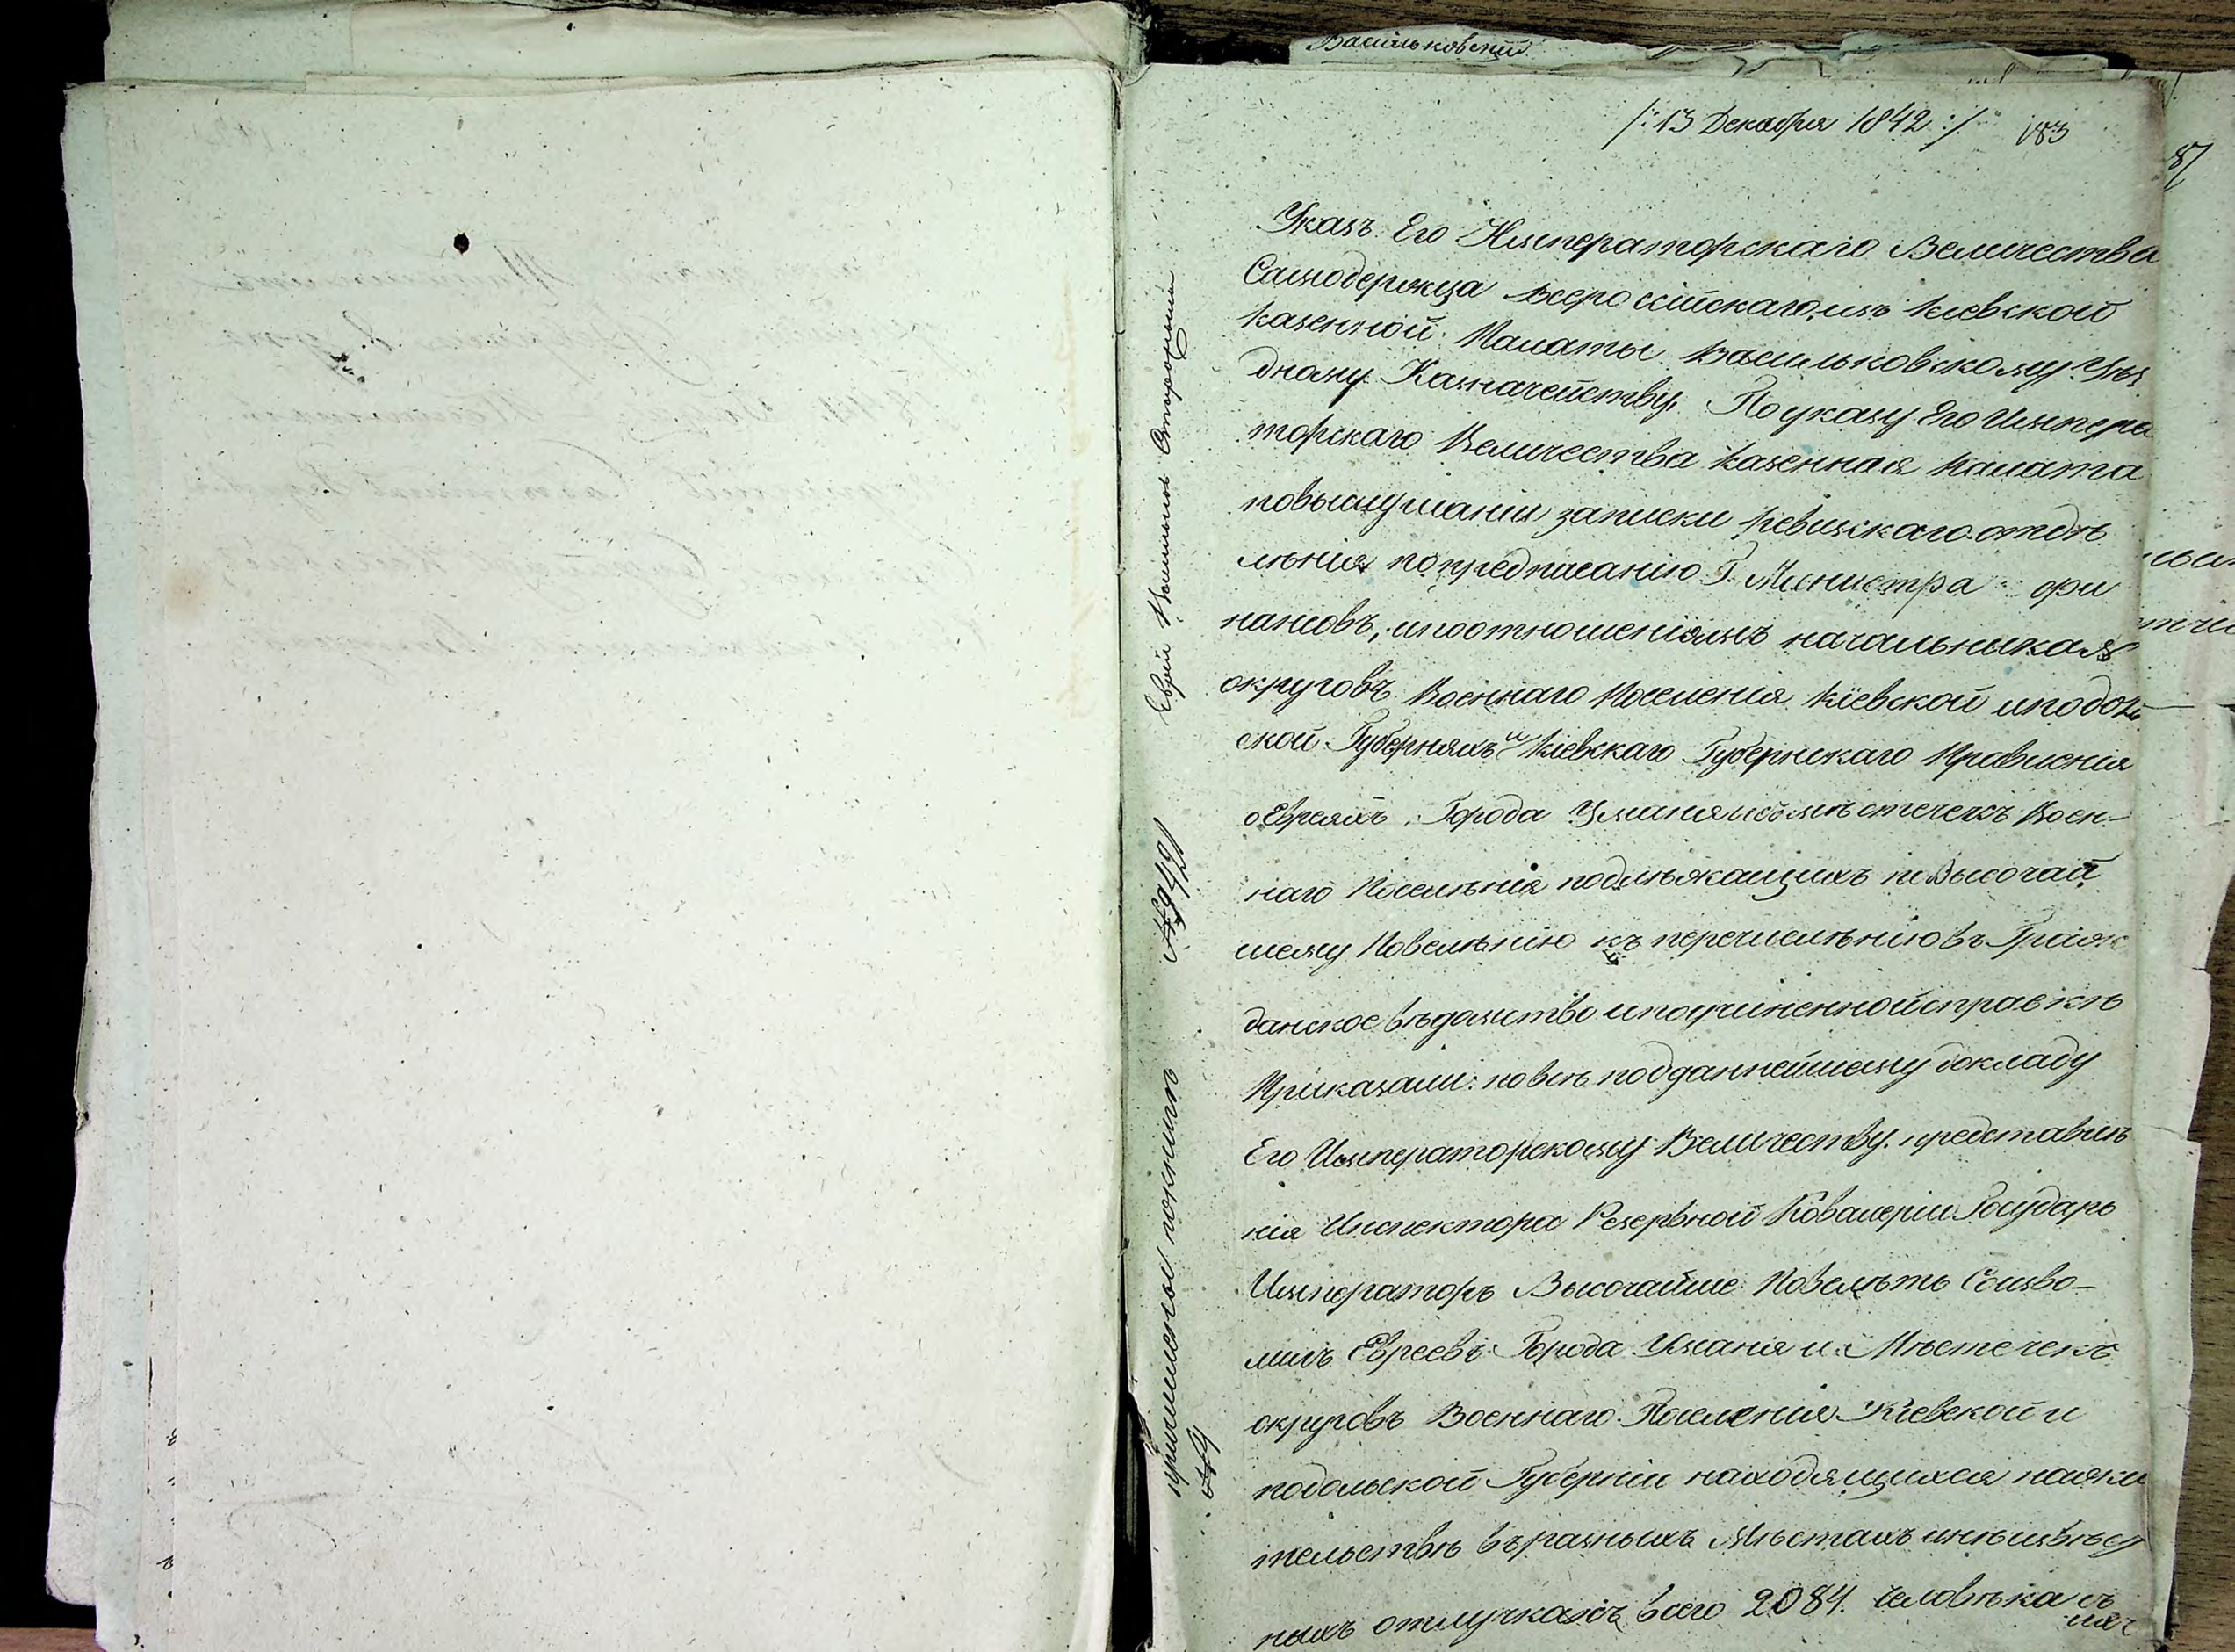 Васильковскій
/: 13 Декабря 1842 :/ 183
87
Указъ Его Императорскаго Величества
Самодержца Всероссійскаго, изъ Кіевской
Казенной Палаты Васильковскому Уѣз
дному Казначейству. По указу Его Импера
торскаго Величества Казенная Палата
повыслушаніи записки Ревизскаго отдѣ
лѣнія по предписанію Г. Министра Фи
нансовъ, и поотношеніямъ начальника
округовъ Военнаго Поселенія Кіевской и подоль
ской Губерніяхъ и Кіевскаго Губернскаго Правленія
о Евреяхъ, Города Уманя и мѣстечекъ Воен-
наго Поселѣнія подлѣжащихъ по Высочай
шему Повелѣнію къ перечислѣнію въ Граж
данское вѣдомство и поучиненной справкѣ
Приказали: по всѣ подданнейшему докладу
Его Императорскому Величеству представлѣ
нія Инспектора Резервной Ковалеріи Государь
Императоръ Высочайше Повелѣть Соизво-
лилъ Евреевъ Города Уманя и Мѣстечекъ
округовъ Военнаго Поселенія Кіевской и
подольской Губерніи находящихся на жи
тельствѣ въ разныхъ Мѣстахъ
ныхъ отлучкахъ всего 2084. человѣка съ
Еврей
№ 9421
№